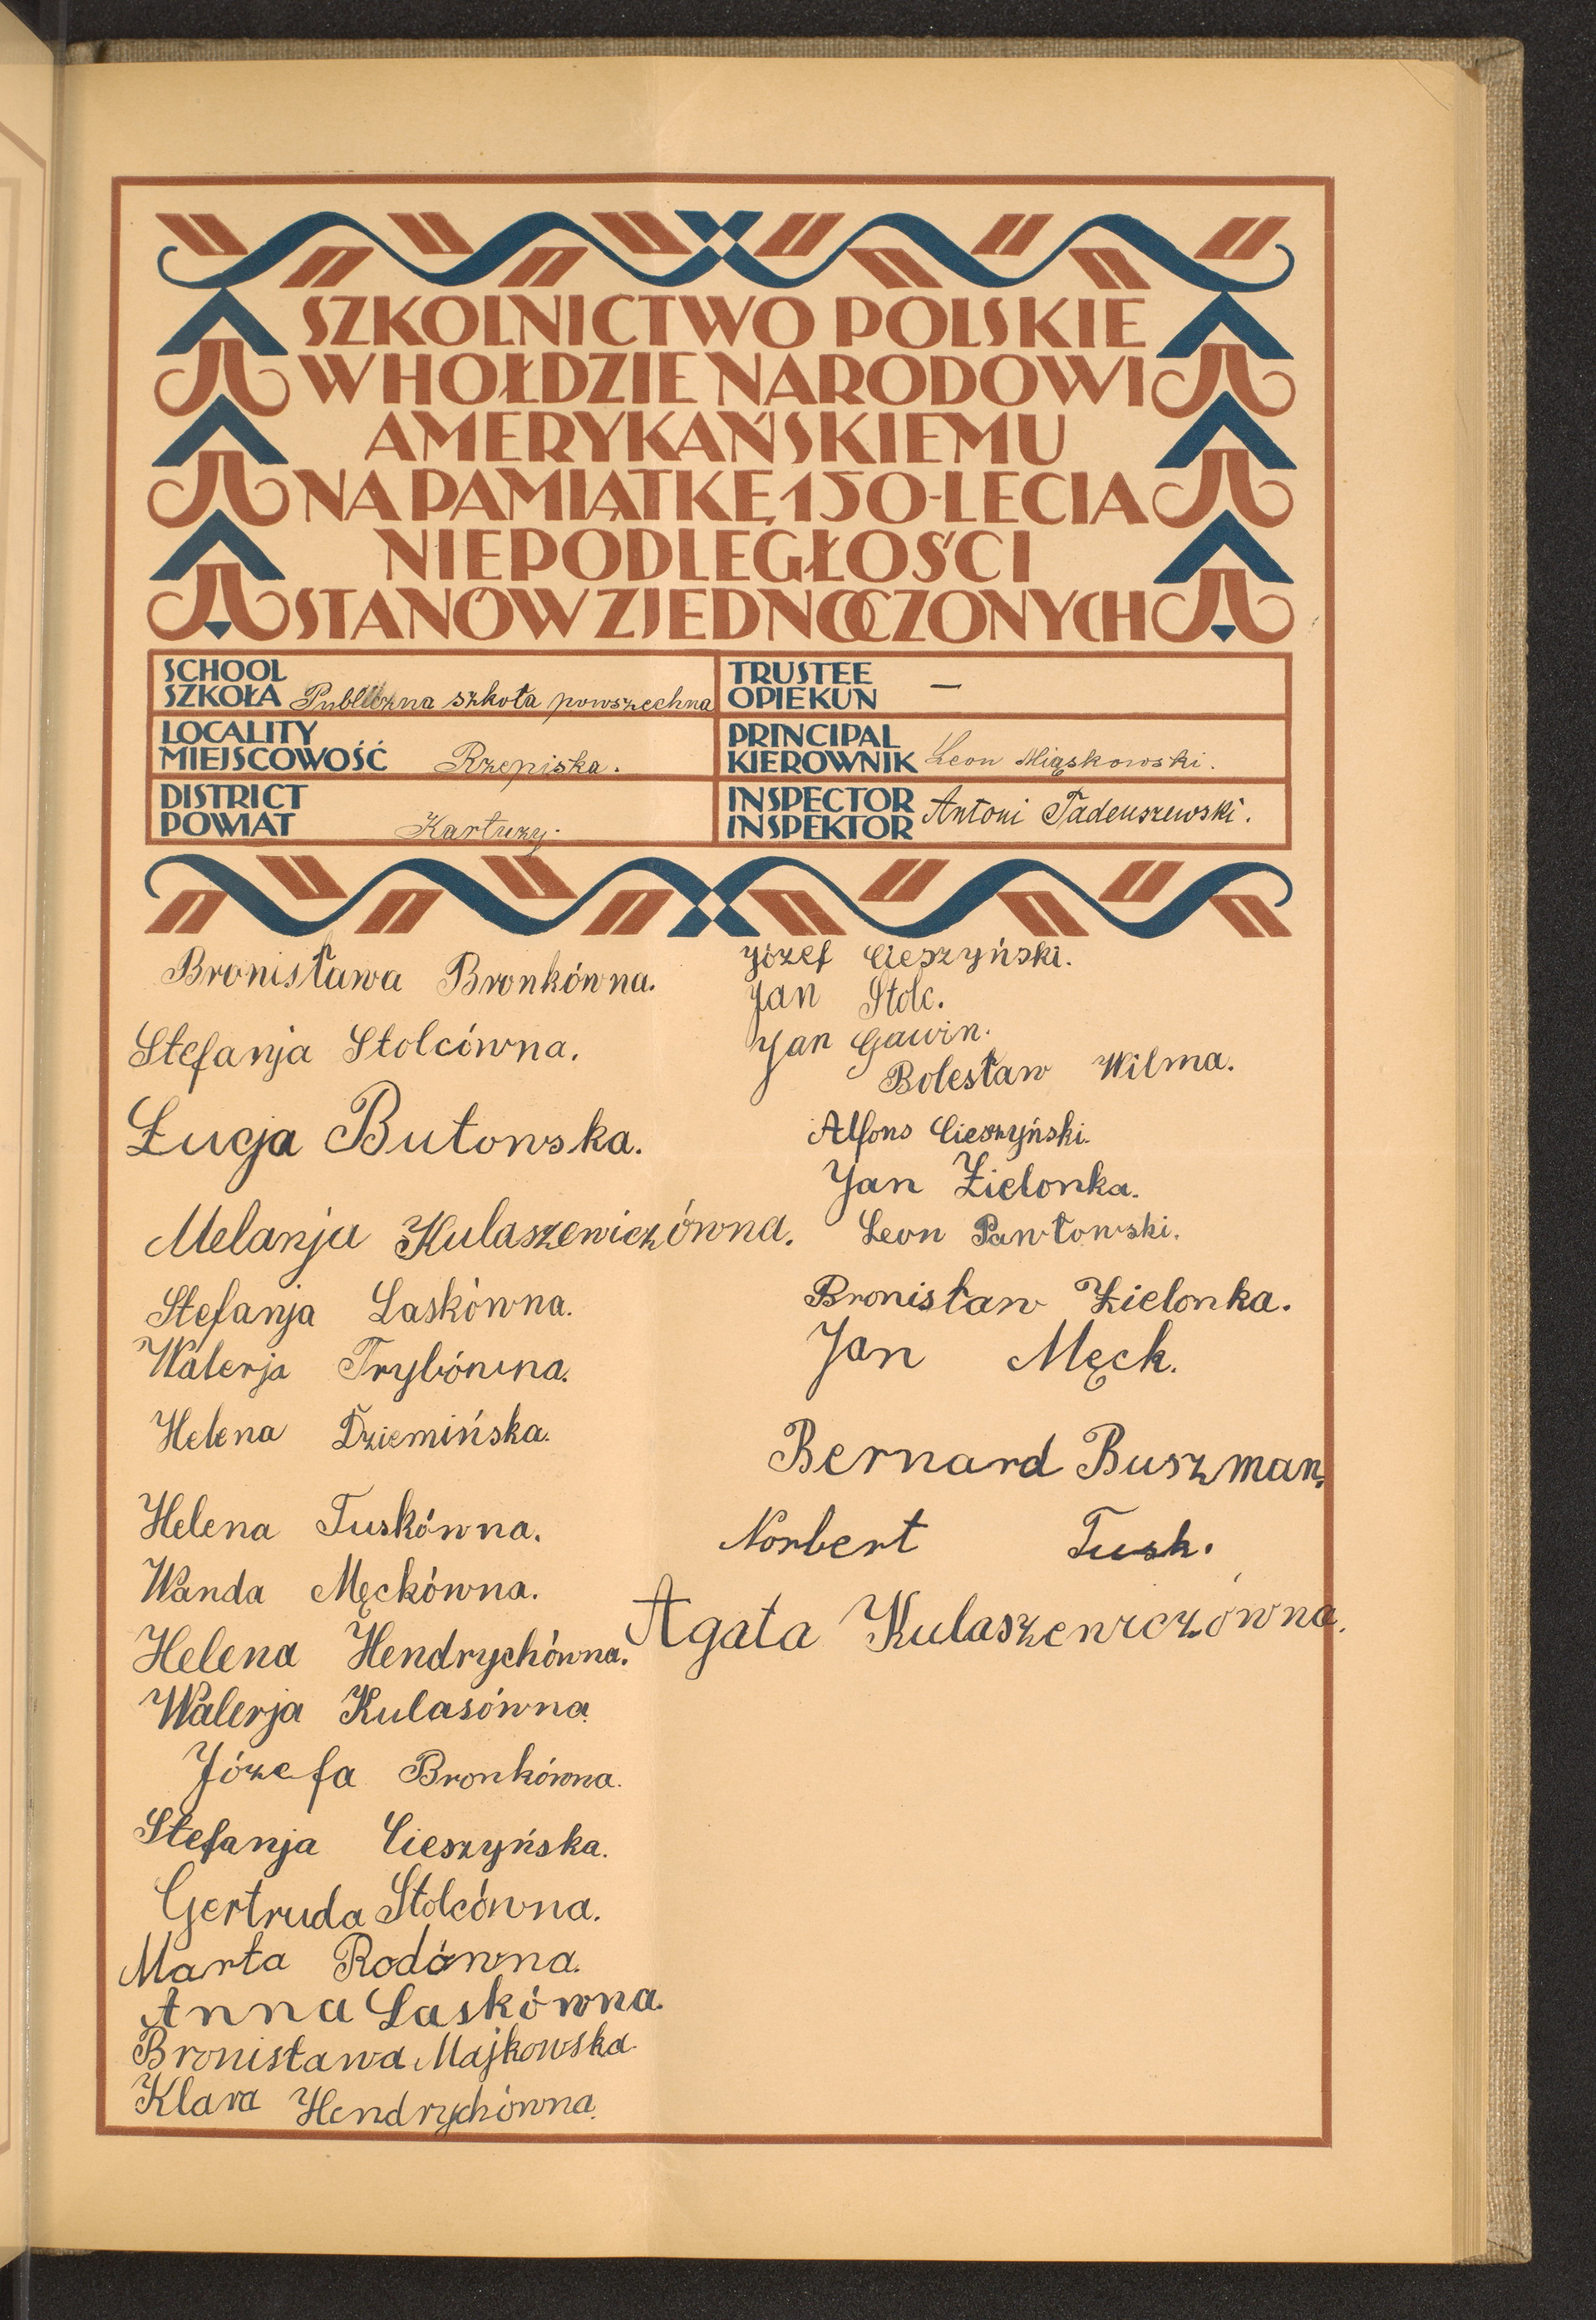 SZKOLNICTWO POLSKIE
W HOŁDZIE NARODOWI
AMERYKAŃSKIEMU
NA PAMIĄTKĘ 150-LECIA
NIEPODLEGŁOŚCI
STANÓW ZJEDNOCZONYCH
SCHOOL
SZKOŁA Publiczna szkoła powszechna
LOCALITY
MIEJSCOWOŚĆ Rzepiska.
DISTRICT
POWIAT Kartuzy.
TRUSTEE
OPIEKUN —
PRINCIPAL
KIEROWNIK Leon Miąskowski.
INSPECTOR
INSPEKTOR Antoni Tadeuszewski.
Bronisława Bronkówna.
Stefanja Stolcówna.
Łucja Butowska.
Melanja Kulaszewiczówna.
Stefanja Laskówna.
Walerja Trybówna.
Helena Dziemińska.
Helena Tuskówna.
Wanda Męckówna.
Helena Hendrychówna.
Walerja Kulasówna.
Józefa Bronkówna.
Stefanja Cieszyńska.
Gertruda Stolcówna.
Marta Rodówna.
Anna Laskówna.
Bronisława Majkowska.
Klara Hendrychówna.
Józef Cieszyński.
Jan Stolc.
Jan Gawin.
Bolesław Wilma.
Alfons Cieszyński.
Jan Zielonka.
Leon Pawłowski.
Bronisław Zielonka.
Jan Męck.
Bernard Buszman.
Norbert Tusk.
Agata Kulaszewiczówna.